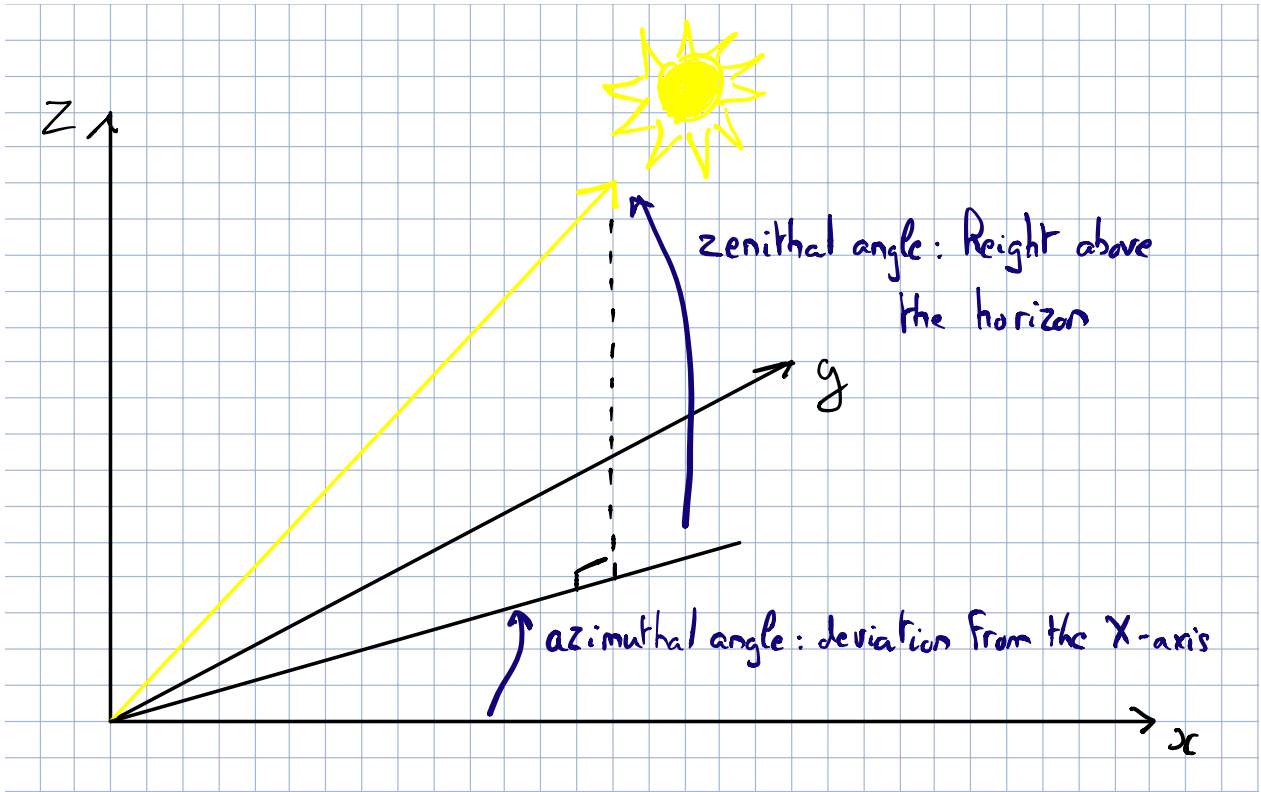 Z
zenithal angle: Height above
the horizon
y
azimuthal angle: deviation from the X-axis
x